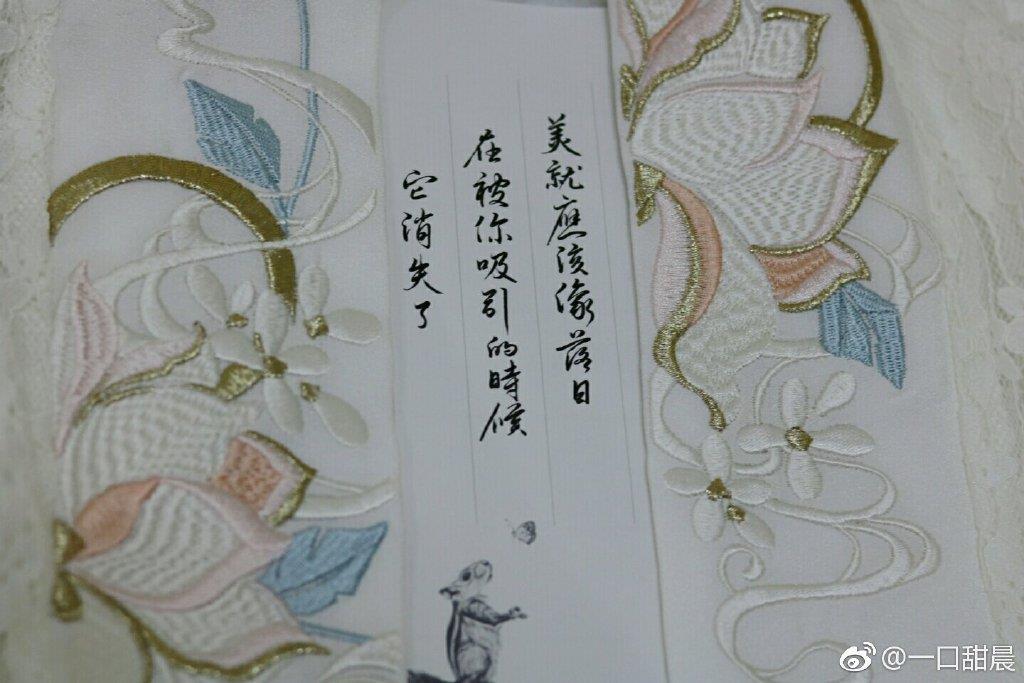 美就應該像落日
在被你吸引的時候
它消失了
@一口甜晨